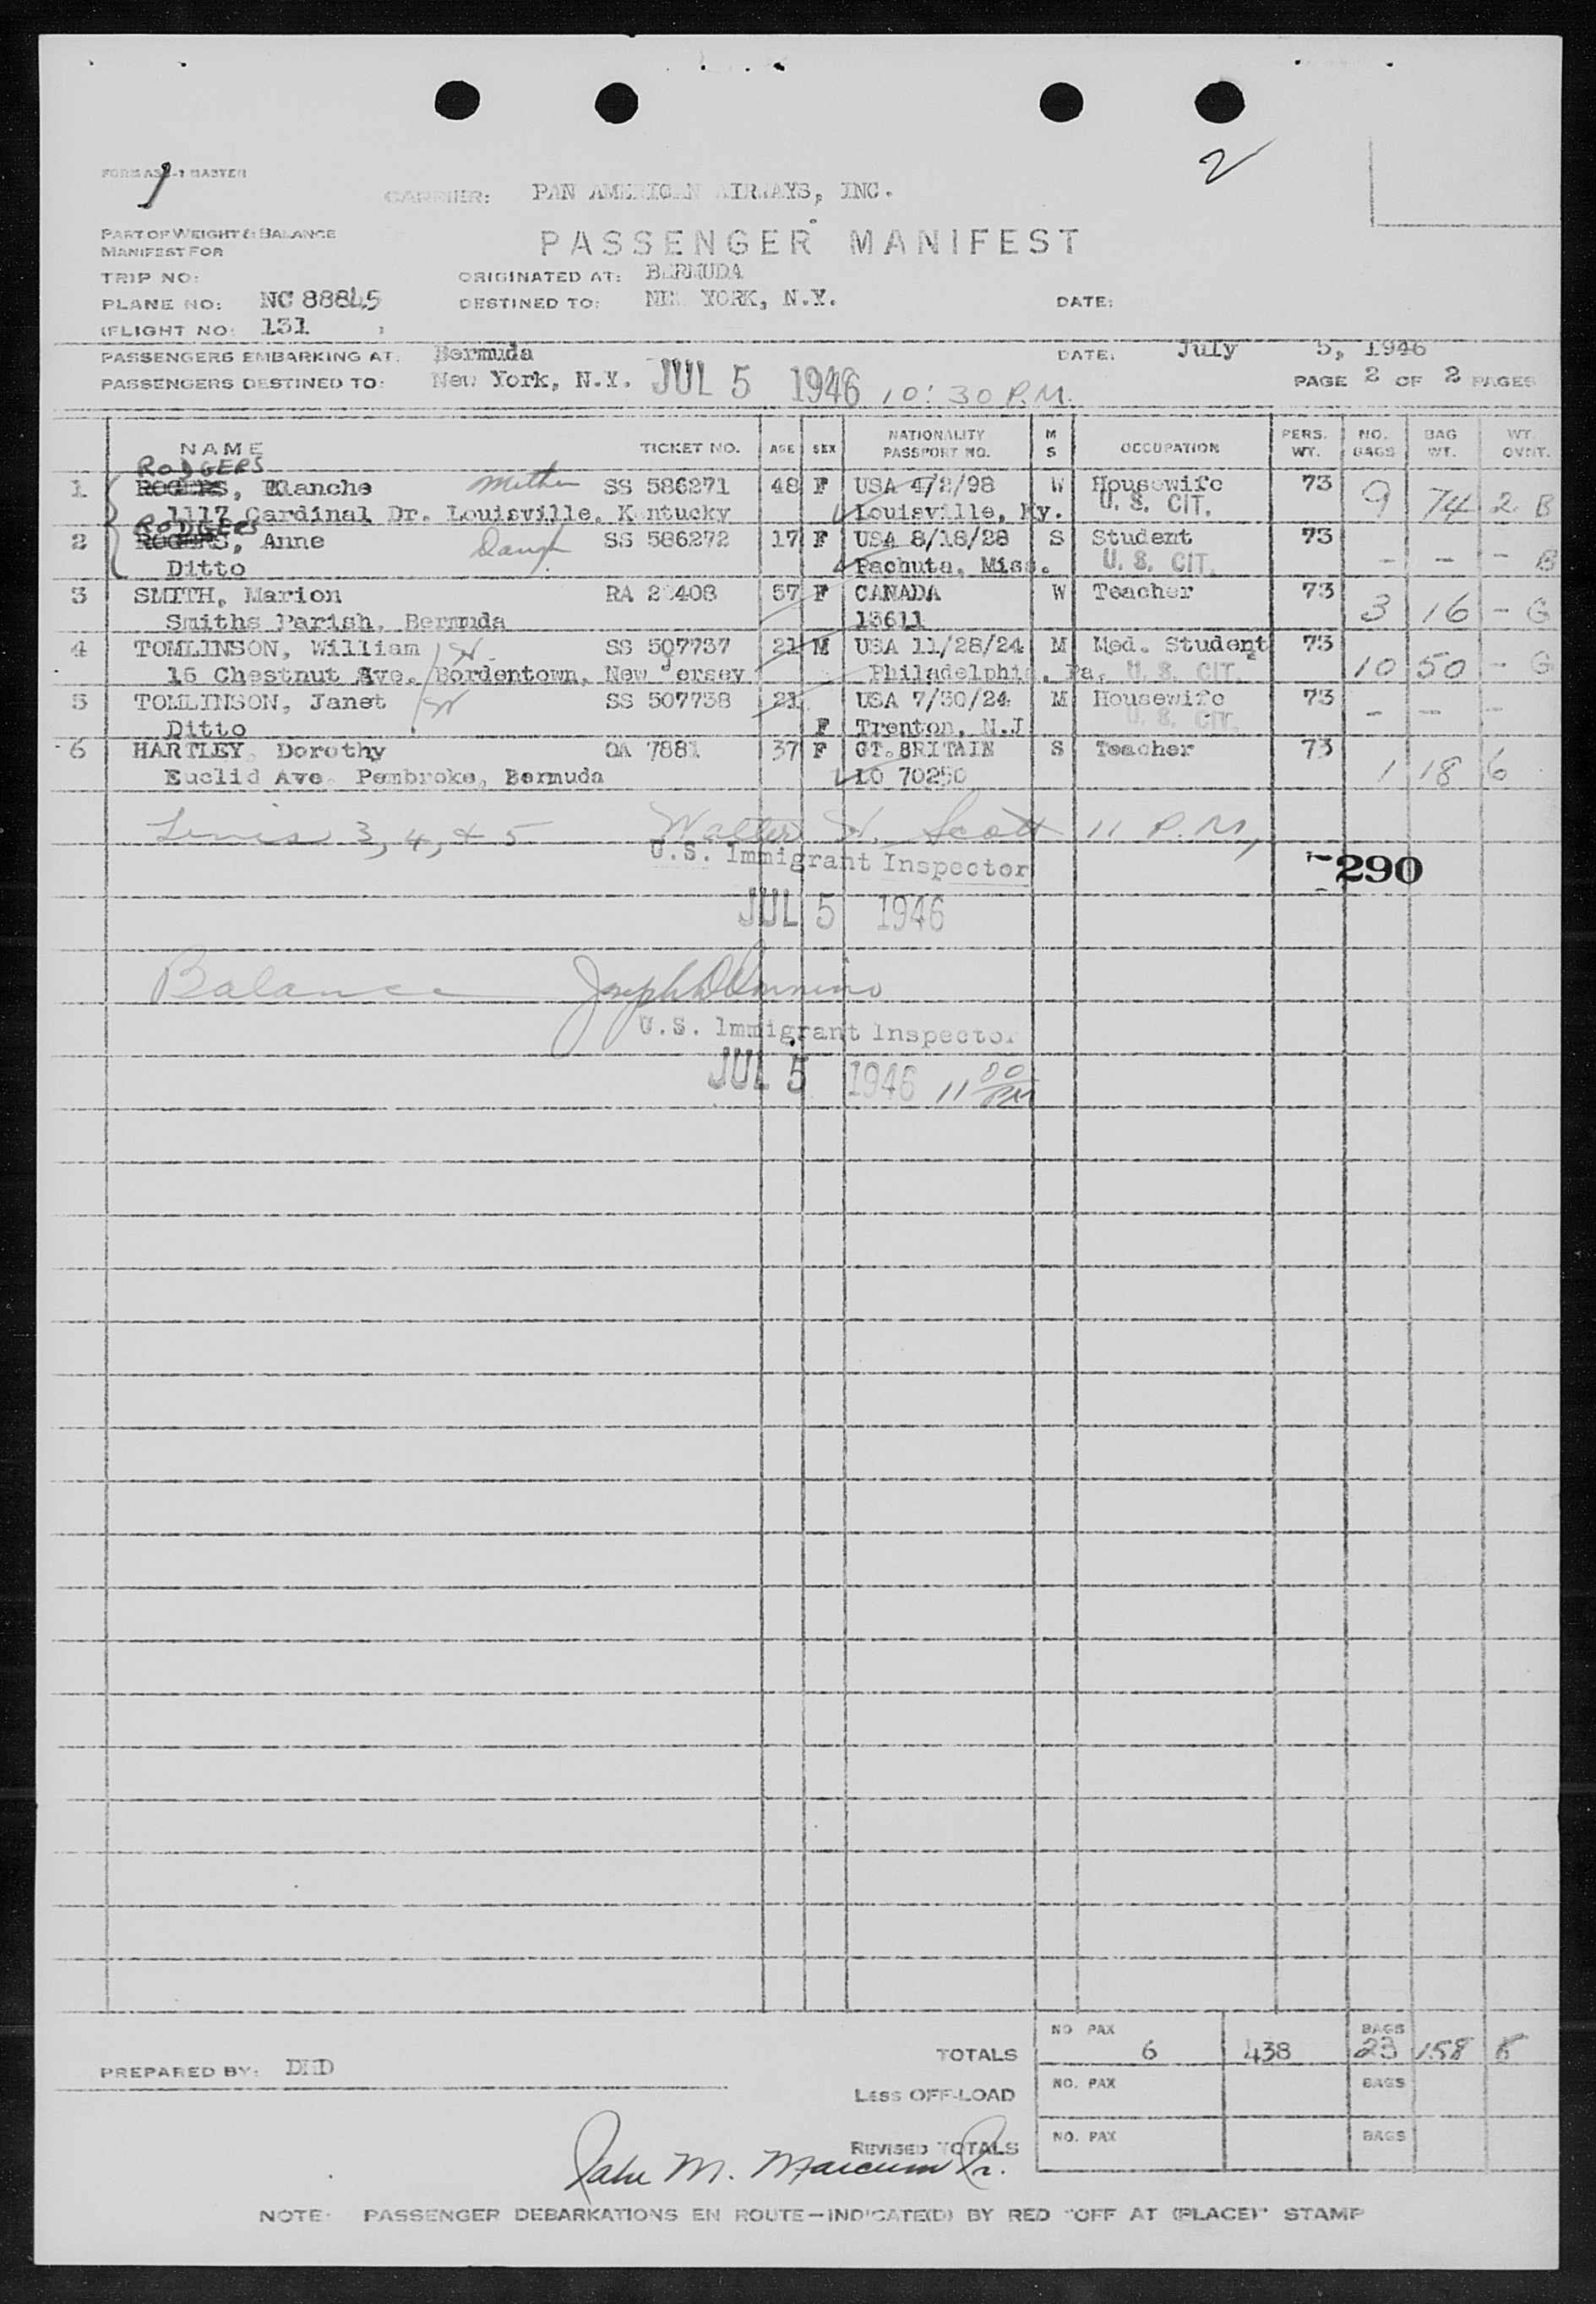 2
CARRIER: PAN AMERICAN AIRWAYS, INC.
PART OF WEIGHT & BALANCE
MANIFEST FOR
PASSENGER MANIFEST
TRIP NO: ORIGINATED AT: BERMUDA
PLANE NO: NC 88845 DESTINED TO: NEW YORK, N.Y. DATE:
FLIGHT NO: 131
PASSENGERS EMBARKING AT: Bermuda DATE: July 5, 1946
PASSENGERS DESTINED TO: New York, N.Y. JUL 5 1946 10:30 P.M. PAGE 2 OF 2 PAGES
NAME TICKET NO. AGE SEX NATIONALITY PASSPORT NO. M S OCCUPATION PERS. WT. NO. BAGS BAG WT. WT. OVNT.
RODGERS
1 ROGERS, Blanche Mother SS 586271 48 F USA 4/2/98 W Housewife 73 9 74 2 B
1117 Cardinal Dr. Louisville, Kentucky Louisville, Ky. U. S. CIT.
RODGERS
2 ROGERS, Anne Daugh SS 586272 17 F USA 8/18/28 S Student 73 - - - B
Ditto Pachuta, Miss. U. S. CIT.
3 SMITH, Marion RA 408 57 F CANADA W Teacher 73 3 16 - G
Smiths Parish, Bermuda 13611
4 TOMLINSON, William SS 507737 21 M USA 11/28/24 M Med. Student 73 10 50 - G
15 Chestnut Ave. Bordentown, New Jersey Philadelphia, Pa. U. S. CIT.
5 TOMLINSON, Janet SS 507738 21 USA 7/30/24 M Housewife 73 - - -
Ditto F Trenton, N.J. U. S. CIT.
6 HARTLEY, Dorothy OA 7881 37 F GT. BRITAIN S Teacher 73 1 18 6
Euclid Ave. Pembroke, Bermuda LO 70250
Lines 3, 4, & 5 Walter H. Scott 11 P.M.
U.S. Immigrant Inspector
290
JUL 5 1946
Balance Joseph
U.S. Immigrant Inspector
JUL 5 1946 11 00 PM
TOTALS NO PAX 6 438 BAGS 23 158 8
PREPARED BY: DMD
LESS OFF-LOAD NO. PAX BAGS
REVISED TOTALS NO. PAX BAGS
John M. Marcum Jr.
NOTE: PASSENGER DEBARKATIONS EN ROUTE—INDICATE(D) BY RED "OFF AT (PLACE)" STAMP